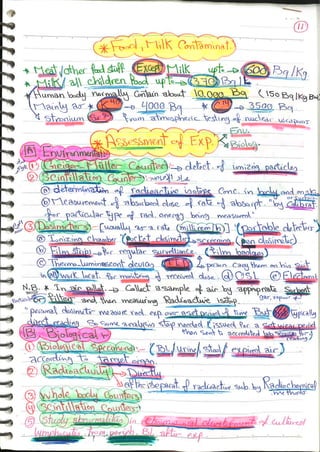 11
* Food, Milk Contaminat.
* Meat/other food stuff Except Milk upto → 600 Bq/Kg
* Milk/all children food upto → 370 Bq/L
* Human body normally Contain about 10,000 Bq (150 Bq/Kg
Mainly as * → 4000 Bq * → 3500 Bq.
* Strontium from atmospheric testing of nuclear weapons
* Assessment of Exp. Env.
Biolog.
[A] Environmental:
(1) Geiger Muller Counter → detect. of ionizing particles
(2) Scintillation Counter:
(a) determination of radioactive isotope Conc. in body and
(b) Measurement of absorbed dose of rate of absorpt. by
for particular type of rad. energy being measured.
(3) Dosimeters: (usually as a rate (millirem/h) (Portable detector)
(a) Ionizing Chamber (Pocket dosimeter) screening (pen dosimetic)
(b) Film strips for regular surveillance (Film badges)
(c) Thermo luminescent device pers. Carry them on his suit
at work beat for monitoring of received dose (d) OSL (e) Electronic
N.B. * In air pollut → Collect a sample of air by appropriate Sorbent
or Filter and then measuring Radioactive isotop.
personal dosimeter measure rad. exp. over a set period of time But typically
direct reading So some analysis step needed (issued for a set wear period
then sent to accredited lab
[B] Biological:
(1) Biological Specimens (Bl / Urine / stool / expired air)
according to Target organ
(2) Radioactivity Directly
after Separat. of radioactive sub by Radiochemical
methods
(3) Whole body Counters
(4) Scintillation Counters
(5) Study abnormalities in Chromosomal development of cultured
lymphocytes from periph. Bl. after exp.